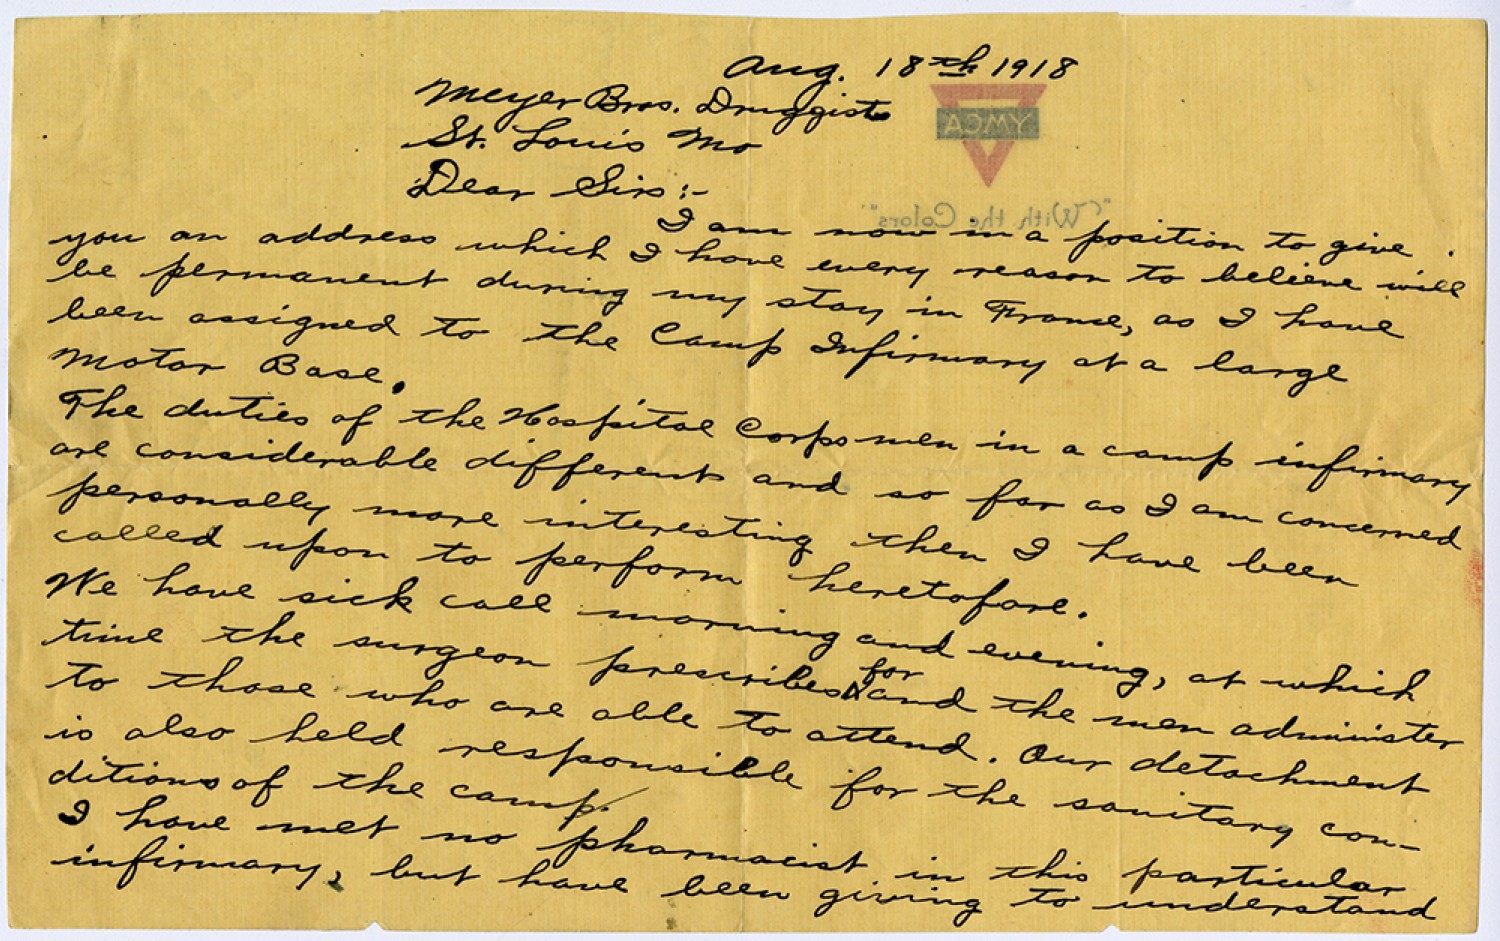 Aug. 18th 1918
Meyer Bros. Druggists
St. Louis Mo
YMCA
Dear Sirs:-
"With the Colors"
I am now in a position to give
you an address which I have every reason to believe will
be permanent during my stay in France, as I have
been assigned to the Camp Infirmary at a large
Motor Base.
The duties of the Hospital Corpsmen in a camp infirmary
are considerable different and so far as I am concerned
personally more interesting then I have been
called upon to perform heretofore.
We have sick call morning and evening, at which
time the surgeon prescribes for and the men administer
to those who are able to attend. Our detachment
is also held responsible for the sanitary con-
ditions of the camp.
I have met no pharmacist in this particular
infirmary, but have been giving to understand